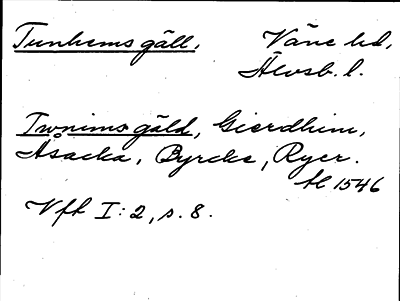 Tunhems gäll, Väne hd,
Älvsb. l.
Twnims gäld, Gierdhim,
Åsacka, Byrcke, Ryer.
ÄC 1546
Vfh I: 2, s. 8.